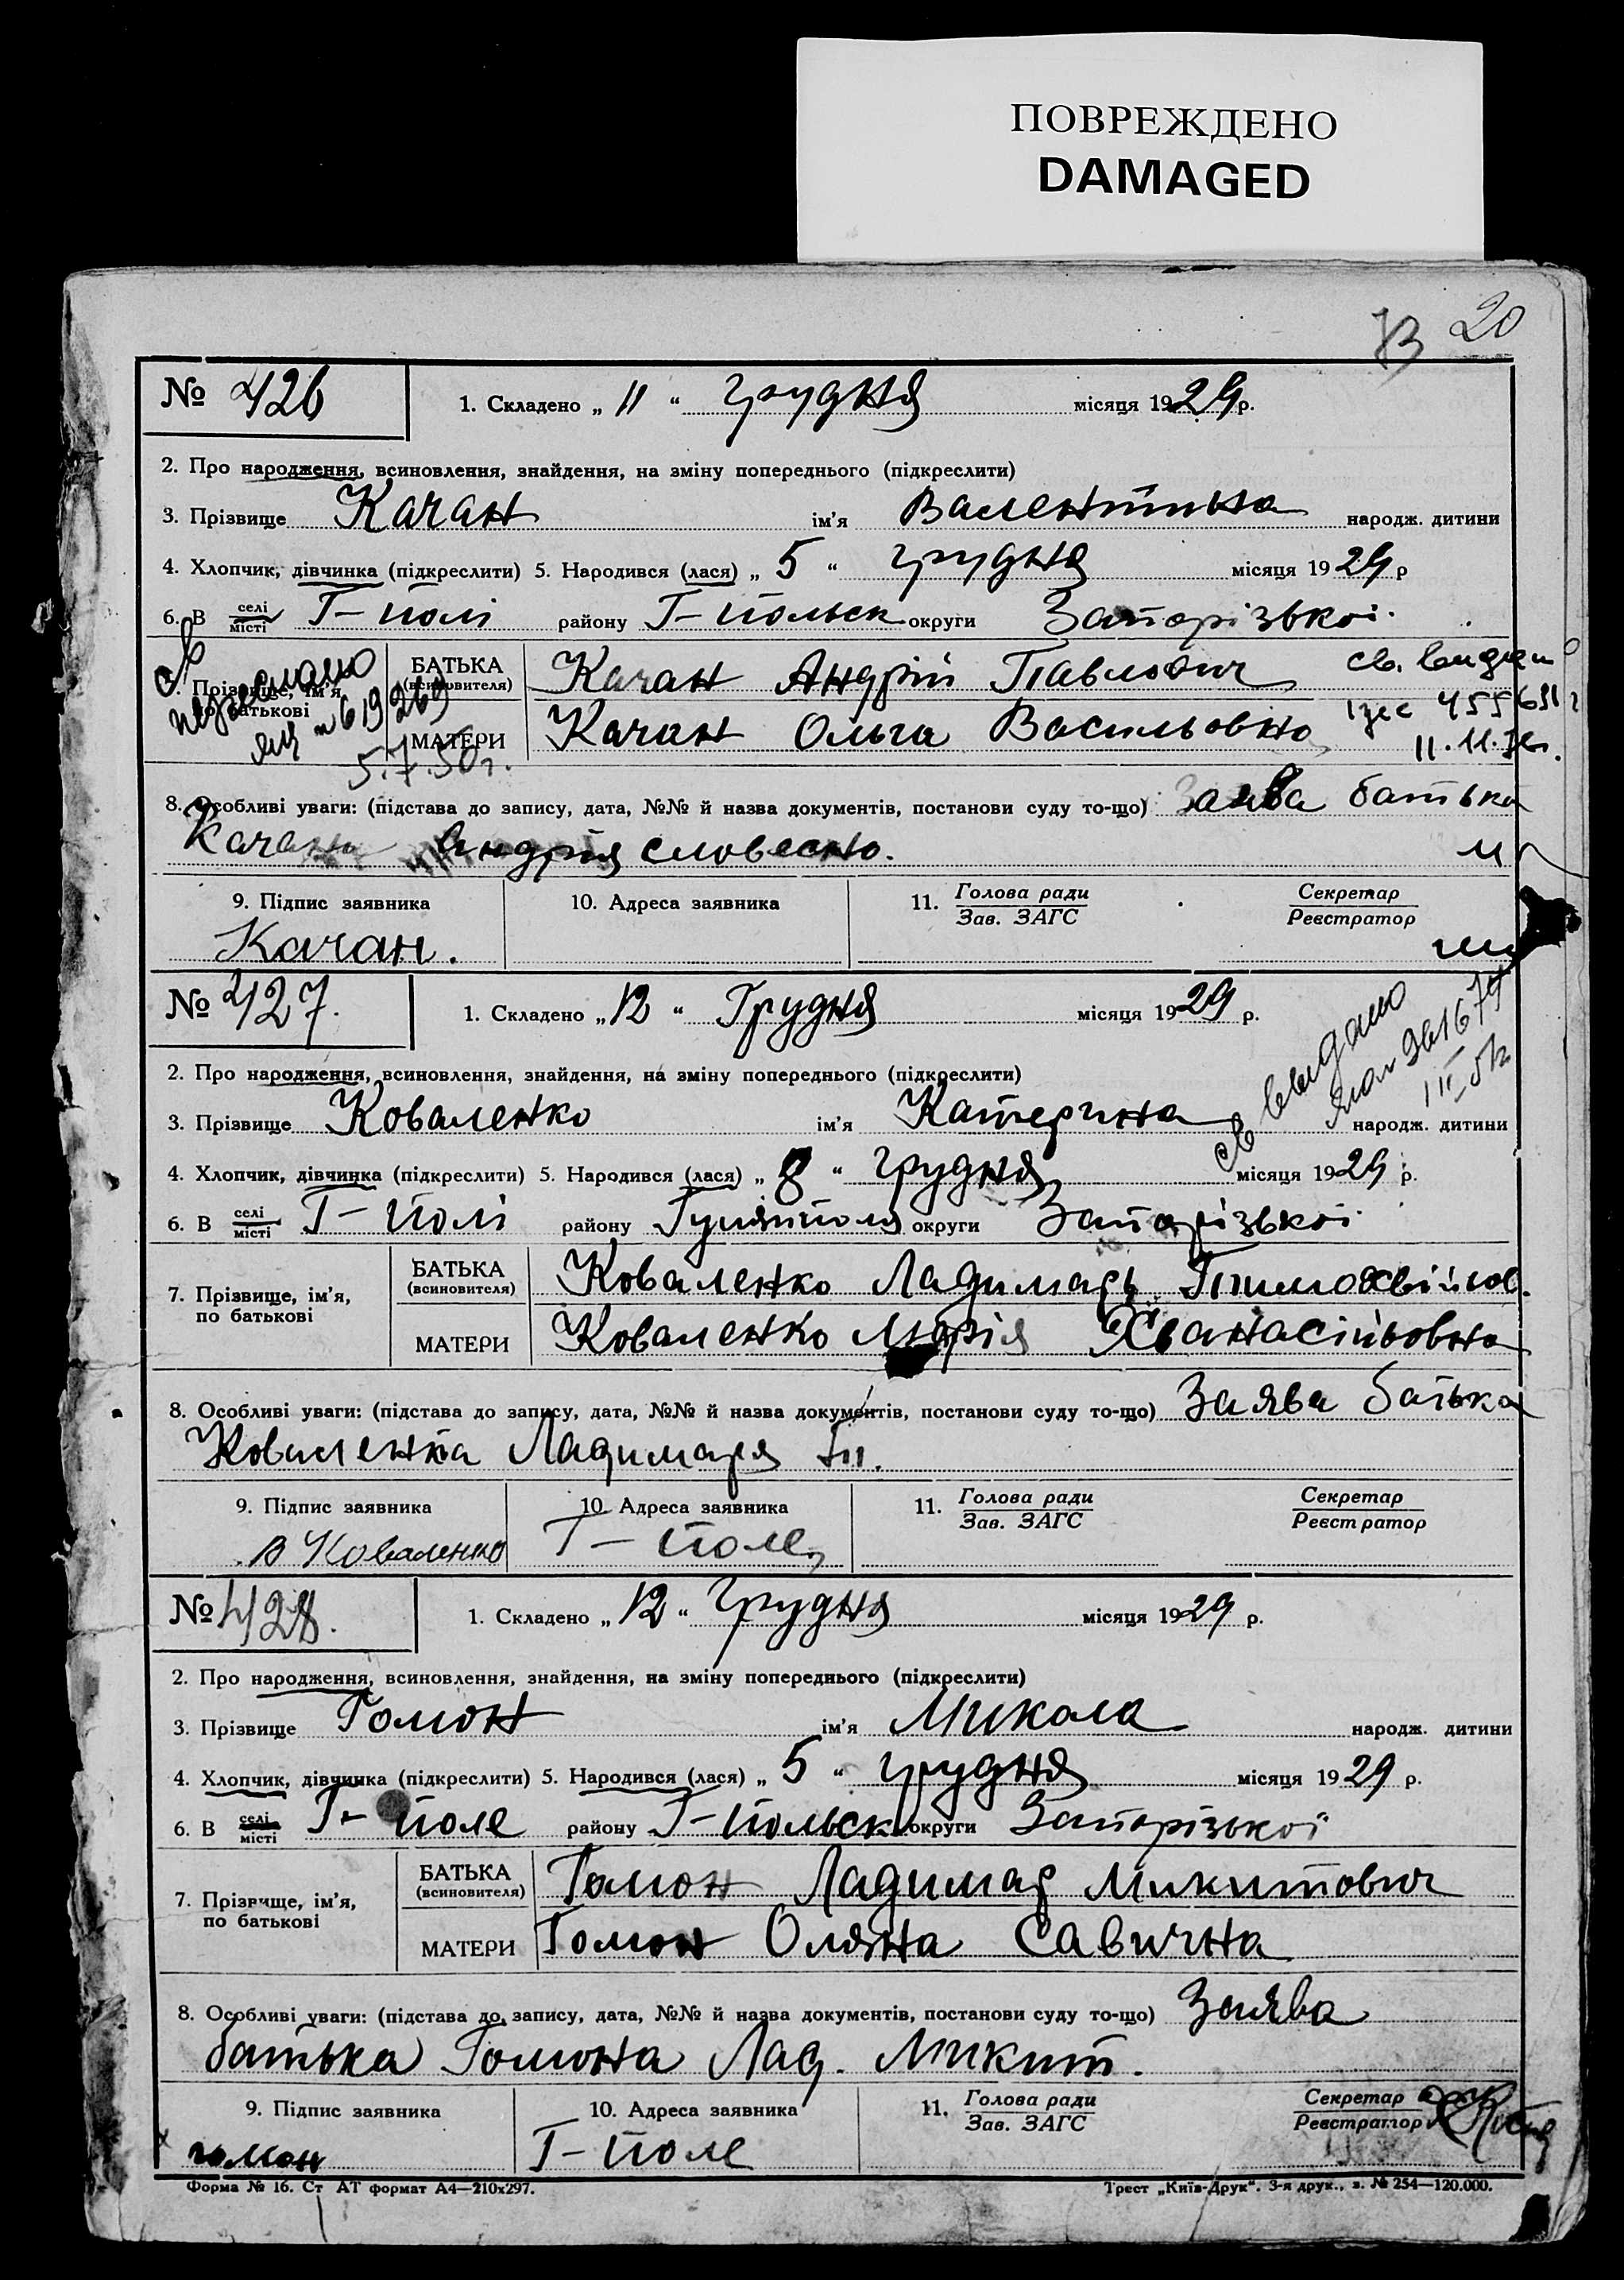 ПОВРЕЖДЕНО
DAMAGED
20
№ 426
1. Складено „ 11 “ грудня місяця 1929 р.
2. Про народження, всиновлення, знайдення, на зміну попереднього (підкреслити)
3. Прізвище Качан ім'я Валентина народж. дитини
4. Хлопчик, дівчинка (підкреслити) 5. Народився (лася) „ 5 “ грудня місяця 1929 р
6. В селі місті Г-Полі району Г-Польск округи Запорізької
7. Прізвище, ім'я, по батькові
БАТЬКА (всиновителя) Качан Андрій Павлович
МАТЕРИ Качан Ольга Васильовна
5.7.50г.
8. Особливі уваги: (підстава до запису, дата, №№ й назва документів, постанови суду то-що) Заява батька
Качана Андрія словесно.
9. Підпис заявника
10. Адреса заявника
11. Голова ради Зав. ЗАГС
Секретар Реєстратор
Качан.
№ 427.
1. Складено „ 12 “ Грудня місяця 1929 р.
св видано
2. Про народження, всиновлення, знайдення, на зміну попереднього (підкреслити)
3. Прізвище Коваленко ім'я Катерина народж. дитини
4. Хлопчик, дівчинка (підкреслити) 5. Народився (лася) „ 8 “ грудня місяця 1929 р.
6. В селі місті Г-Полі району Гуляйполя округи Запорізької
7. Прізвище, ім'я, по батькові
БАТЬКА (всиновителя) Коваленко Ладимарь Тимохвійов.
МАТЕРИ Коваленко Марія Хванасійовна
8. Особливі уваги: (підстава до запису, дата, №№ й назва документів, постанови суду то-що) Заява батька
Коваленка Ладимаря Тм.
9. Підпис заявника
10. Адреса заявника
11. Голова ради Зав. ЗАГС
Секретар Реєстратор
В Коваленко
Г-Поле
№ 428.
1. Складено „ 12 “ грудня місяця 1929 р.
2. Про народження, всиновлення, знайдення, на зміну попереднього (підкреслити)
3. Прізвище Гомон ім'я Микола народж. дитини
4. Хлопчик, дівчинка (підкреслити) 5. Народився (лася) „ 5 “ грудня місяця 1929 р.
6. В селі місті Г-Поле району Г-Польск округи Запорізької
7. Прізвище, ім'я, по батькові
БАТЬКА (всиновителя) Гомон Ладимар Микитович
МАТЕРИ Гомон Оляна Савична
8. Особливі уваги: (підстава до запису, дата, №№ й назва документів, постанови суду то-що) Заява
батька Гомона Лад. Микит.
9. Підпис заявника
10. Адреса заявника
11. Голова ради Зав. ЗАГС
Секретар Реєстратор
гомон
Г-Поле
Форма № 16. Ст АТ формат А4—210х297.
Трест „Київ-Друк“. 3-я друк., з. № 254—120.000.